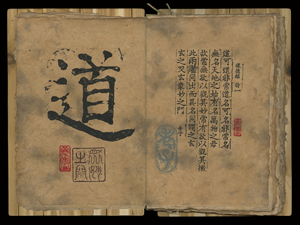 道可道非常道名可名非常名
無名天地之始有名萬物之母
故常無欲以觀其妙常有欲以觀其徼
此兩者同出而異名同謂之玄
玄之又玄衆妙之門
道